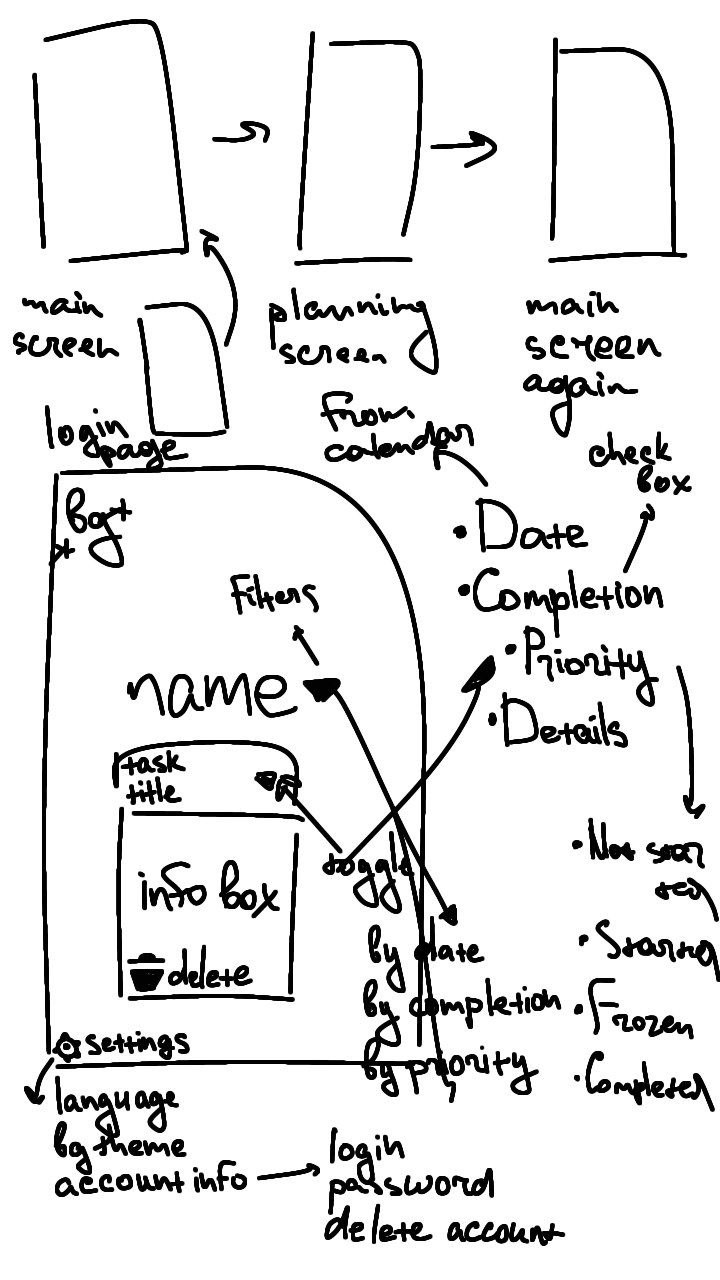 main
screen
planning
screen
main
screen
again
login
page
From
calendar
check
box
Date
Completion
Priority
Details
Filters
name
task
title
info box
delete
toggle
by date
by completion
by priority
Not star
ted
Started
Frozen
Completed
settings
language
bg theme
account info
login
password
delete account